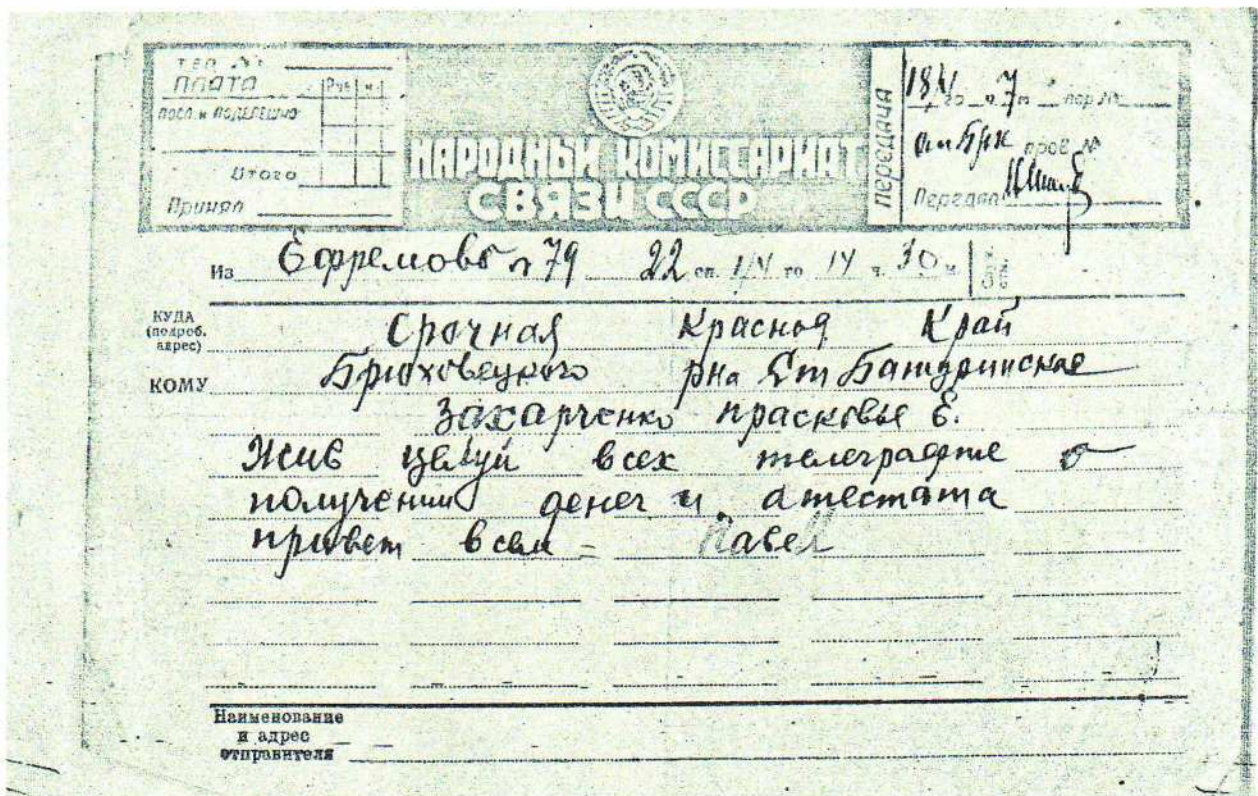 ТЕЛ. №
ПЛАТА Руб. к.
посл. и
Итого
Принял
НАРОДНЫЙ КОМИССАРИАТ
СВЯЗИ СССР
ПЕРЕДАЧА
го ч. 7 м пор. №
пров. №
Передал
Из Ефремова 79 22 сл. го 14 ч. 30 м.
КУДА
(подроб.
адрес)
Срочная Красноя Край
КОМУ Брюховецкого рна Ст Батуринская
Захарченко прасковье Е.
Жив целуй всех телеграфте о
получении денег и атестата
привет всем = Павел
Наименование
и адрес
отправителя